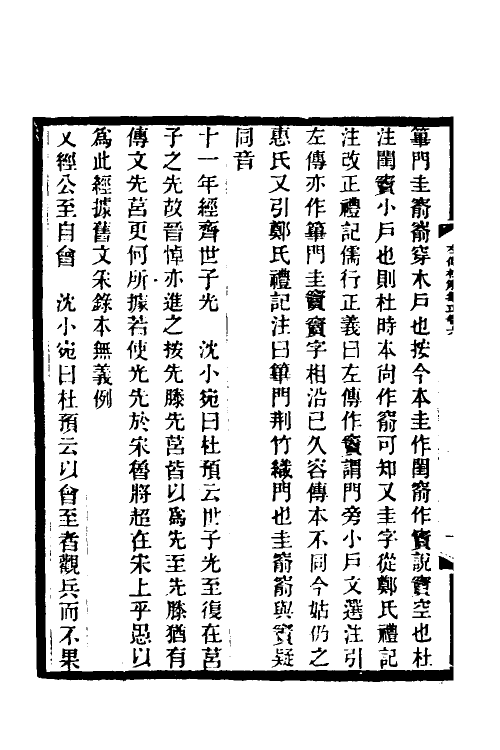 篳門圭窬窬穿木戶也按今本圭作閨窬作竇說竇空也杜
注閨竇小戶也則杜時本尙作窬可知又圭字從鄭氏禮記
注改正禮記儒行正義曰左傳作竇謂門旁小戶文選注引
左傳亦作篳門圭竇竇字相沿已久容傳本不同今姑仍之
惠氏又引鄭氏禮記注曰篳門荆竹織門也圭窬窬與竇疑
同音
十一年經齊世子光　沈小宛曰杜預云世子光至復在莒
子之先故晉悼亦進之按先滕先莒皆以爲先至先滕猶有
傳文先莒更何所據若使光先於宋魯將超在宋上乎愚以
爲此經據舊文采錄本無義例
又經公至自會　沈小宛曰杜預云以會至者觀兵而不果